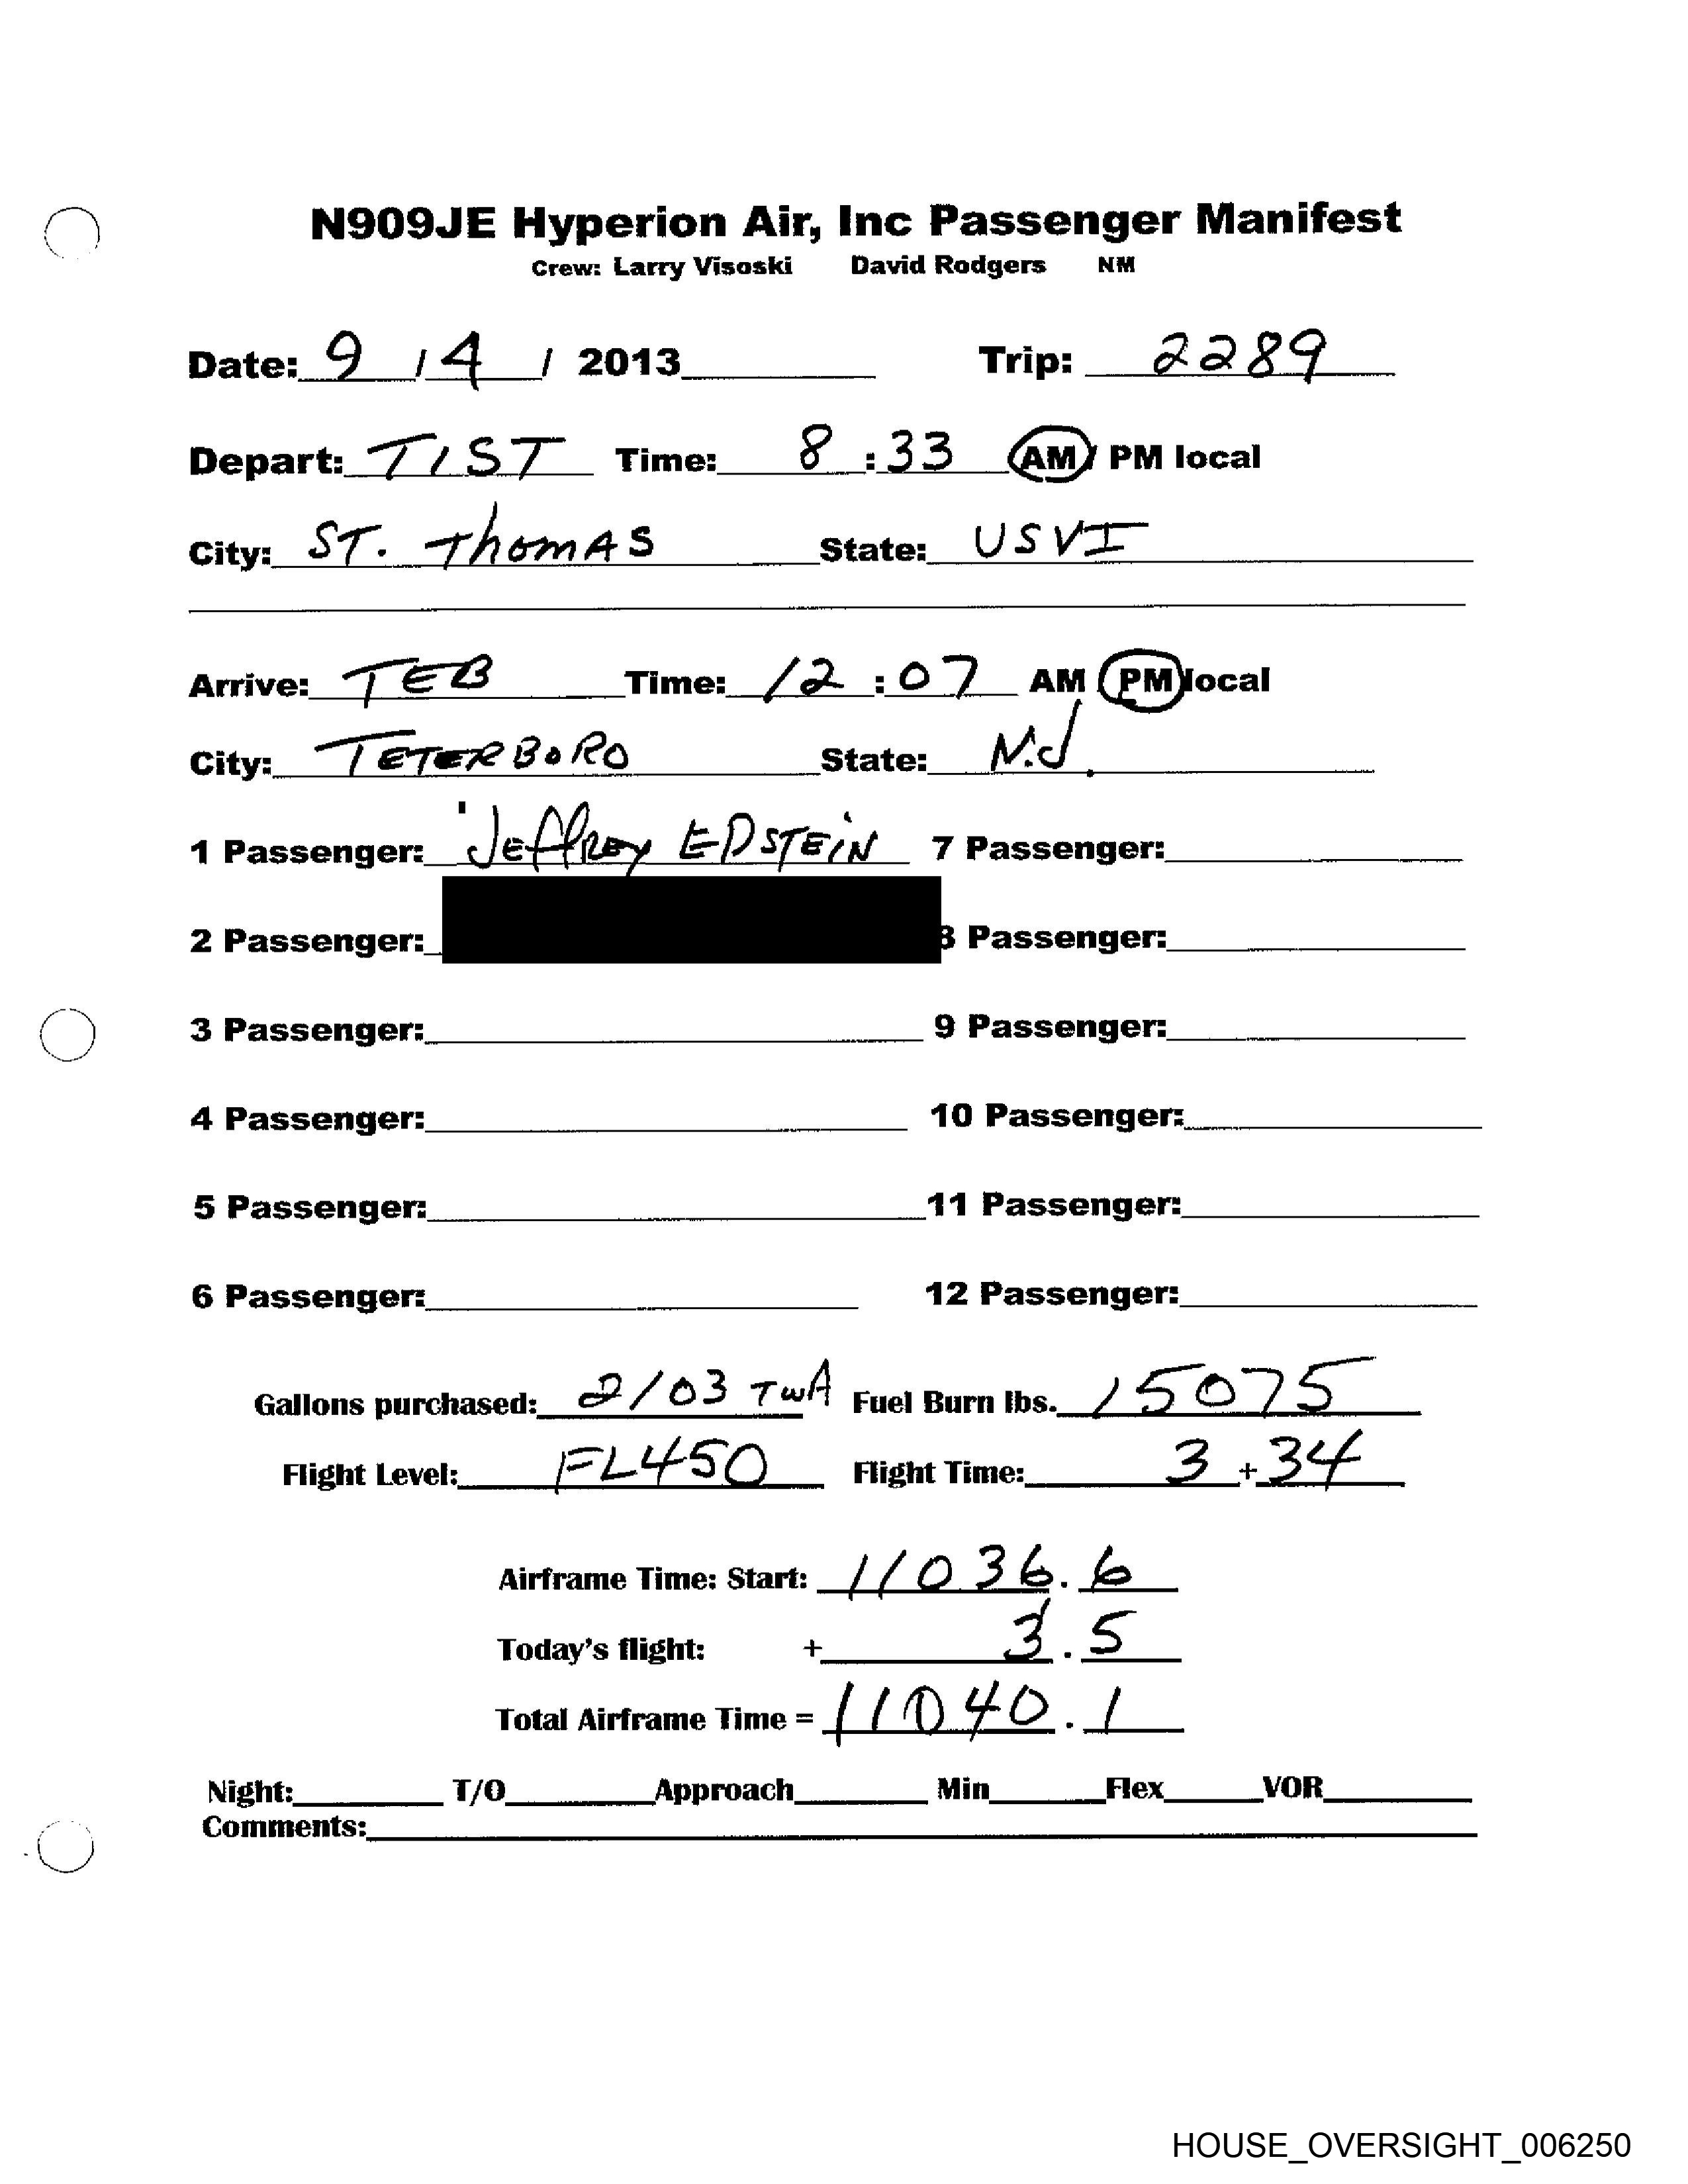 N909JE Hyperion Air, Inc Passenger Manifest
Crew: Larry Visoski David Rodgers NM
Date: 9 / 4 / 2013 Trip: 2289
Depart: TIST Time: 8 : 33 AM / PM local
City: ST. ThomAS State: USVI
Arrive: TEB Time: 12 : 07 AM PM local
City: TETERBORO State: N.J.
1 Passenger: JEffREY EPSTEiN 7 Passenger:
2 Passenger: 8 Passenger:
3 Passenger: 9 Passenger:
4 Passenger: 10 Passenger:
5 Passenger: 11 Passenger:
6 Passenger: 12 Passenger:
Gallons purchased: 2103 TWA Fuel Burn lbs. 15075
Flight Level: FL450 Flight Time: 3 + 34
Airframe Time: Start: 11036.6
Today's flight: + 3.5
Total Airframe Time = 11040.1
Night: T/O Approach Min Flex VOR
Comments:
HOUSE_OVERSIGHT_006250